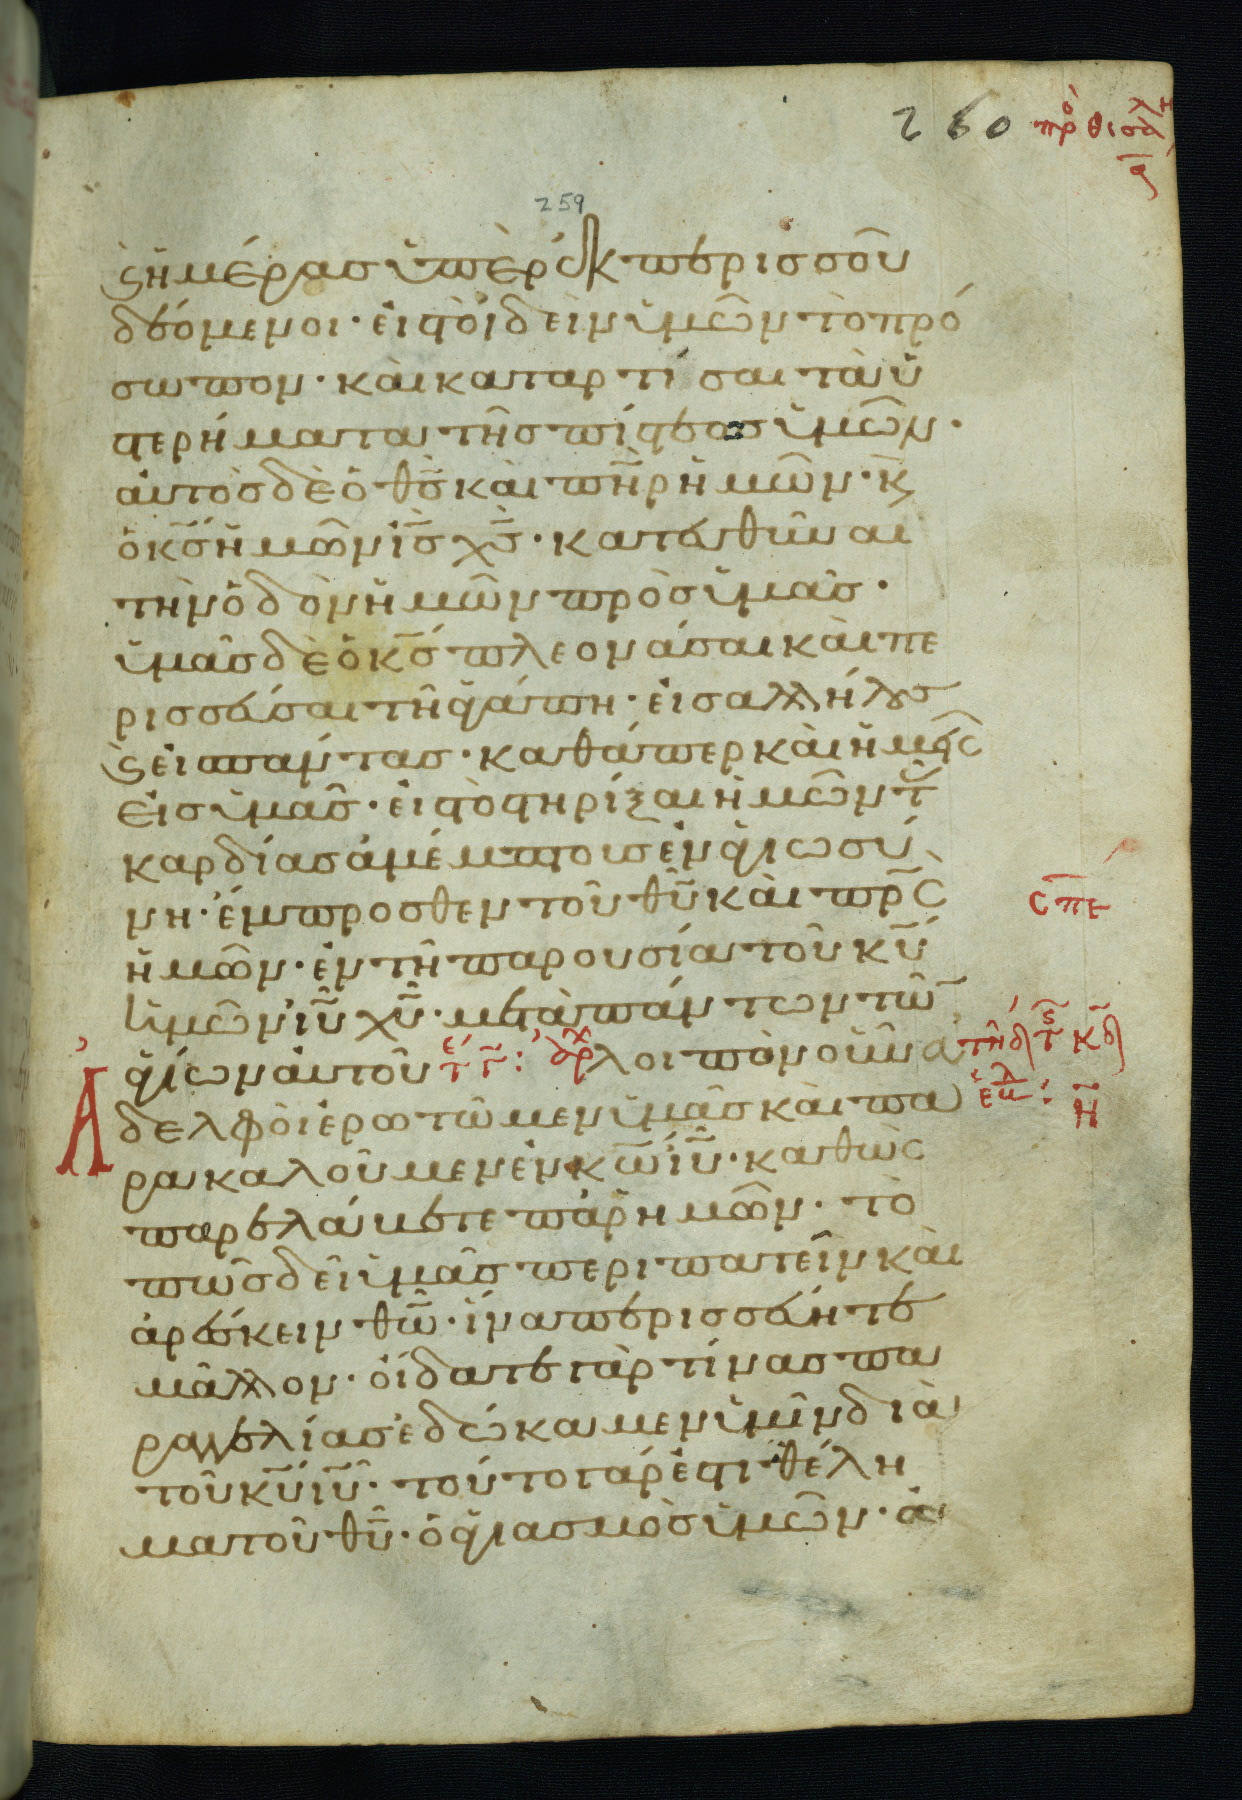 260 πρ θεσαλ α
259
ϛ ἡμέρας ὑπὲρ ἐκπερισσοῦ
δεόμενοι· εἰς τὸ ἰδεῖν ὑμῶν τὸ πρό
σωπον· καὶ καταρτίσαι τὰ ὑ
στερήματα τῆς πίστεως ὑμῶν·
αὐτὸς δὲ ὁ θς̅ καὶ πη̅ρ ἡμῶν· κ̀
ὁ κς̅ ἡμῶν ις̅ χς̅· κατευθῦναι
τὴν ὁδὸν ἡμῶν πρὸς ὑμᾶς·
ὑμᾶς δὲ ὁ κς̅ πλεονάσαι καὶ πε
ρισσεύσαι τῇ ἀγάπη· εἰς ἀλλήλους
ϛ εἰς πάντας· καθάπερ καὶ ἡμεῖς
εἰς ὑμᾶς· εἰς τὸ στηρίξαι ἡμῶν τὰς
καρδίας ἀμέμπτους ἐν ἁγιωσύ
νη· ἔμπροσθεν τοῦ θυ̅ καὶ πρ̅ς
ἡμῶν· ἐν τῇ παρουσία τοῦ κυ̅
ἡμῶν ιυ̅ χυ̅· μετὰ πάντων τῶν
ἁγίων αὐτοῦ λοιπὸν οὖν ἀ
σπε
δελφοὶ ἐρωτῶμεν ὑμᾶς καὶ πα
ρακαλοῦμεν ἐν κω̅ ιυ̅· καθὼς
παρελάβετε παρ' ἡμῶν· τὸ
πῶς δεῖ ὑμᾶς περιπατεῖν καὶ
ἀρέσκειν θω̅· ἵνα περισσεύητε
μᾶλλον· οἴδατε γὰρ τίνας πα
ραγγελίας ἐδώκαμεν ὑμῖν διὰ
τοῦ κυ̅ ιυ̅· τοῦτο γάρ ἐστι θέλη
μα τοῦ θυ̅· ὁ ἁγιασμὸς ὑμῶν· ἀ